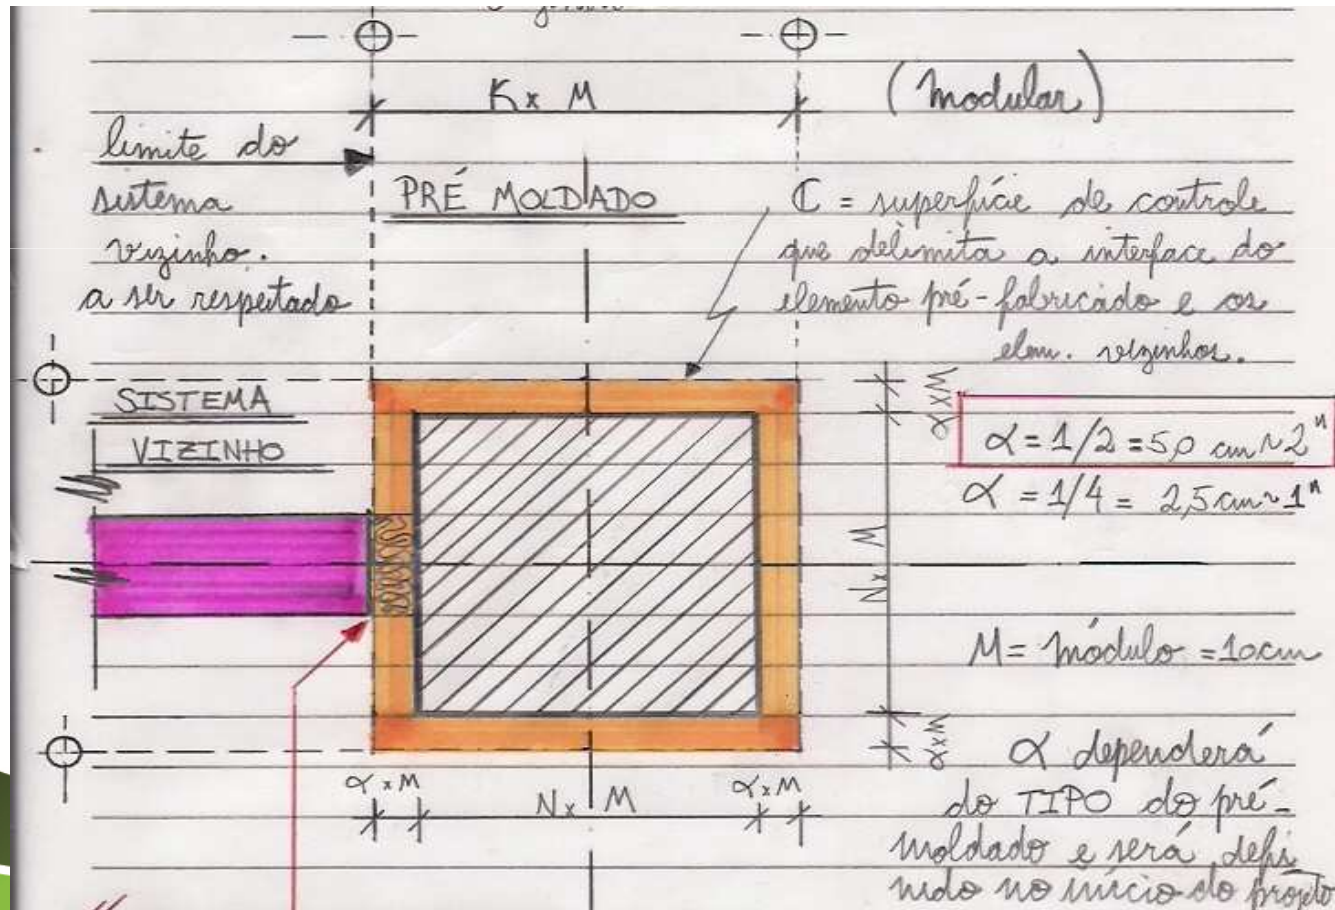 K x M
(modular)
limite do
sistema
vizinho.
a ser respeitado
PRÉ MOLDADO
C = superfície de controle
que delimita a interface do
elemento pré-fabricado e os
elem. vizinhos.
SISTEMA
VIZINHO
α x M
α = 1/2 = 5,0 cm ~ 2"
α = 1/4 = 2,5 cm ~ 1"
N x M
M = módulo = 10cm
α x M
α x M
N x M
α x M
α dependerá
do TIPO do pré-
moldado e será defi
nido no início do projeto